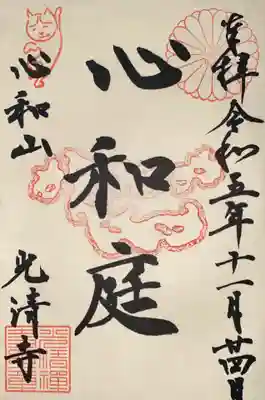 奉拝 令和五年十一月廿四日
心和庭
心和山
光清寺